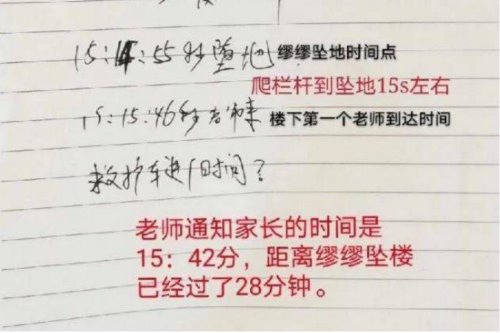 15:14:55秒坠地 缪缪坠地时间点
爬栏杆到坠地15s左右
15:15:46秒老师来 楼下第一个老师到达时间
救护车进门时间?
老师通知家长的时间是
15:42分,距离缪缪坠楼
已经过了28分钟。